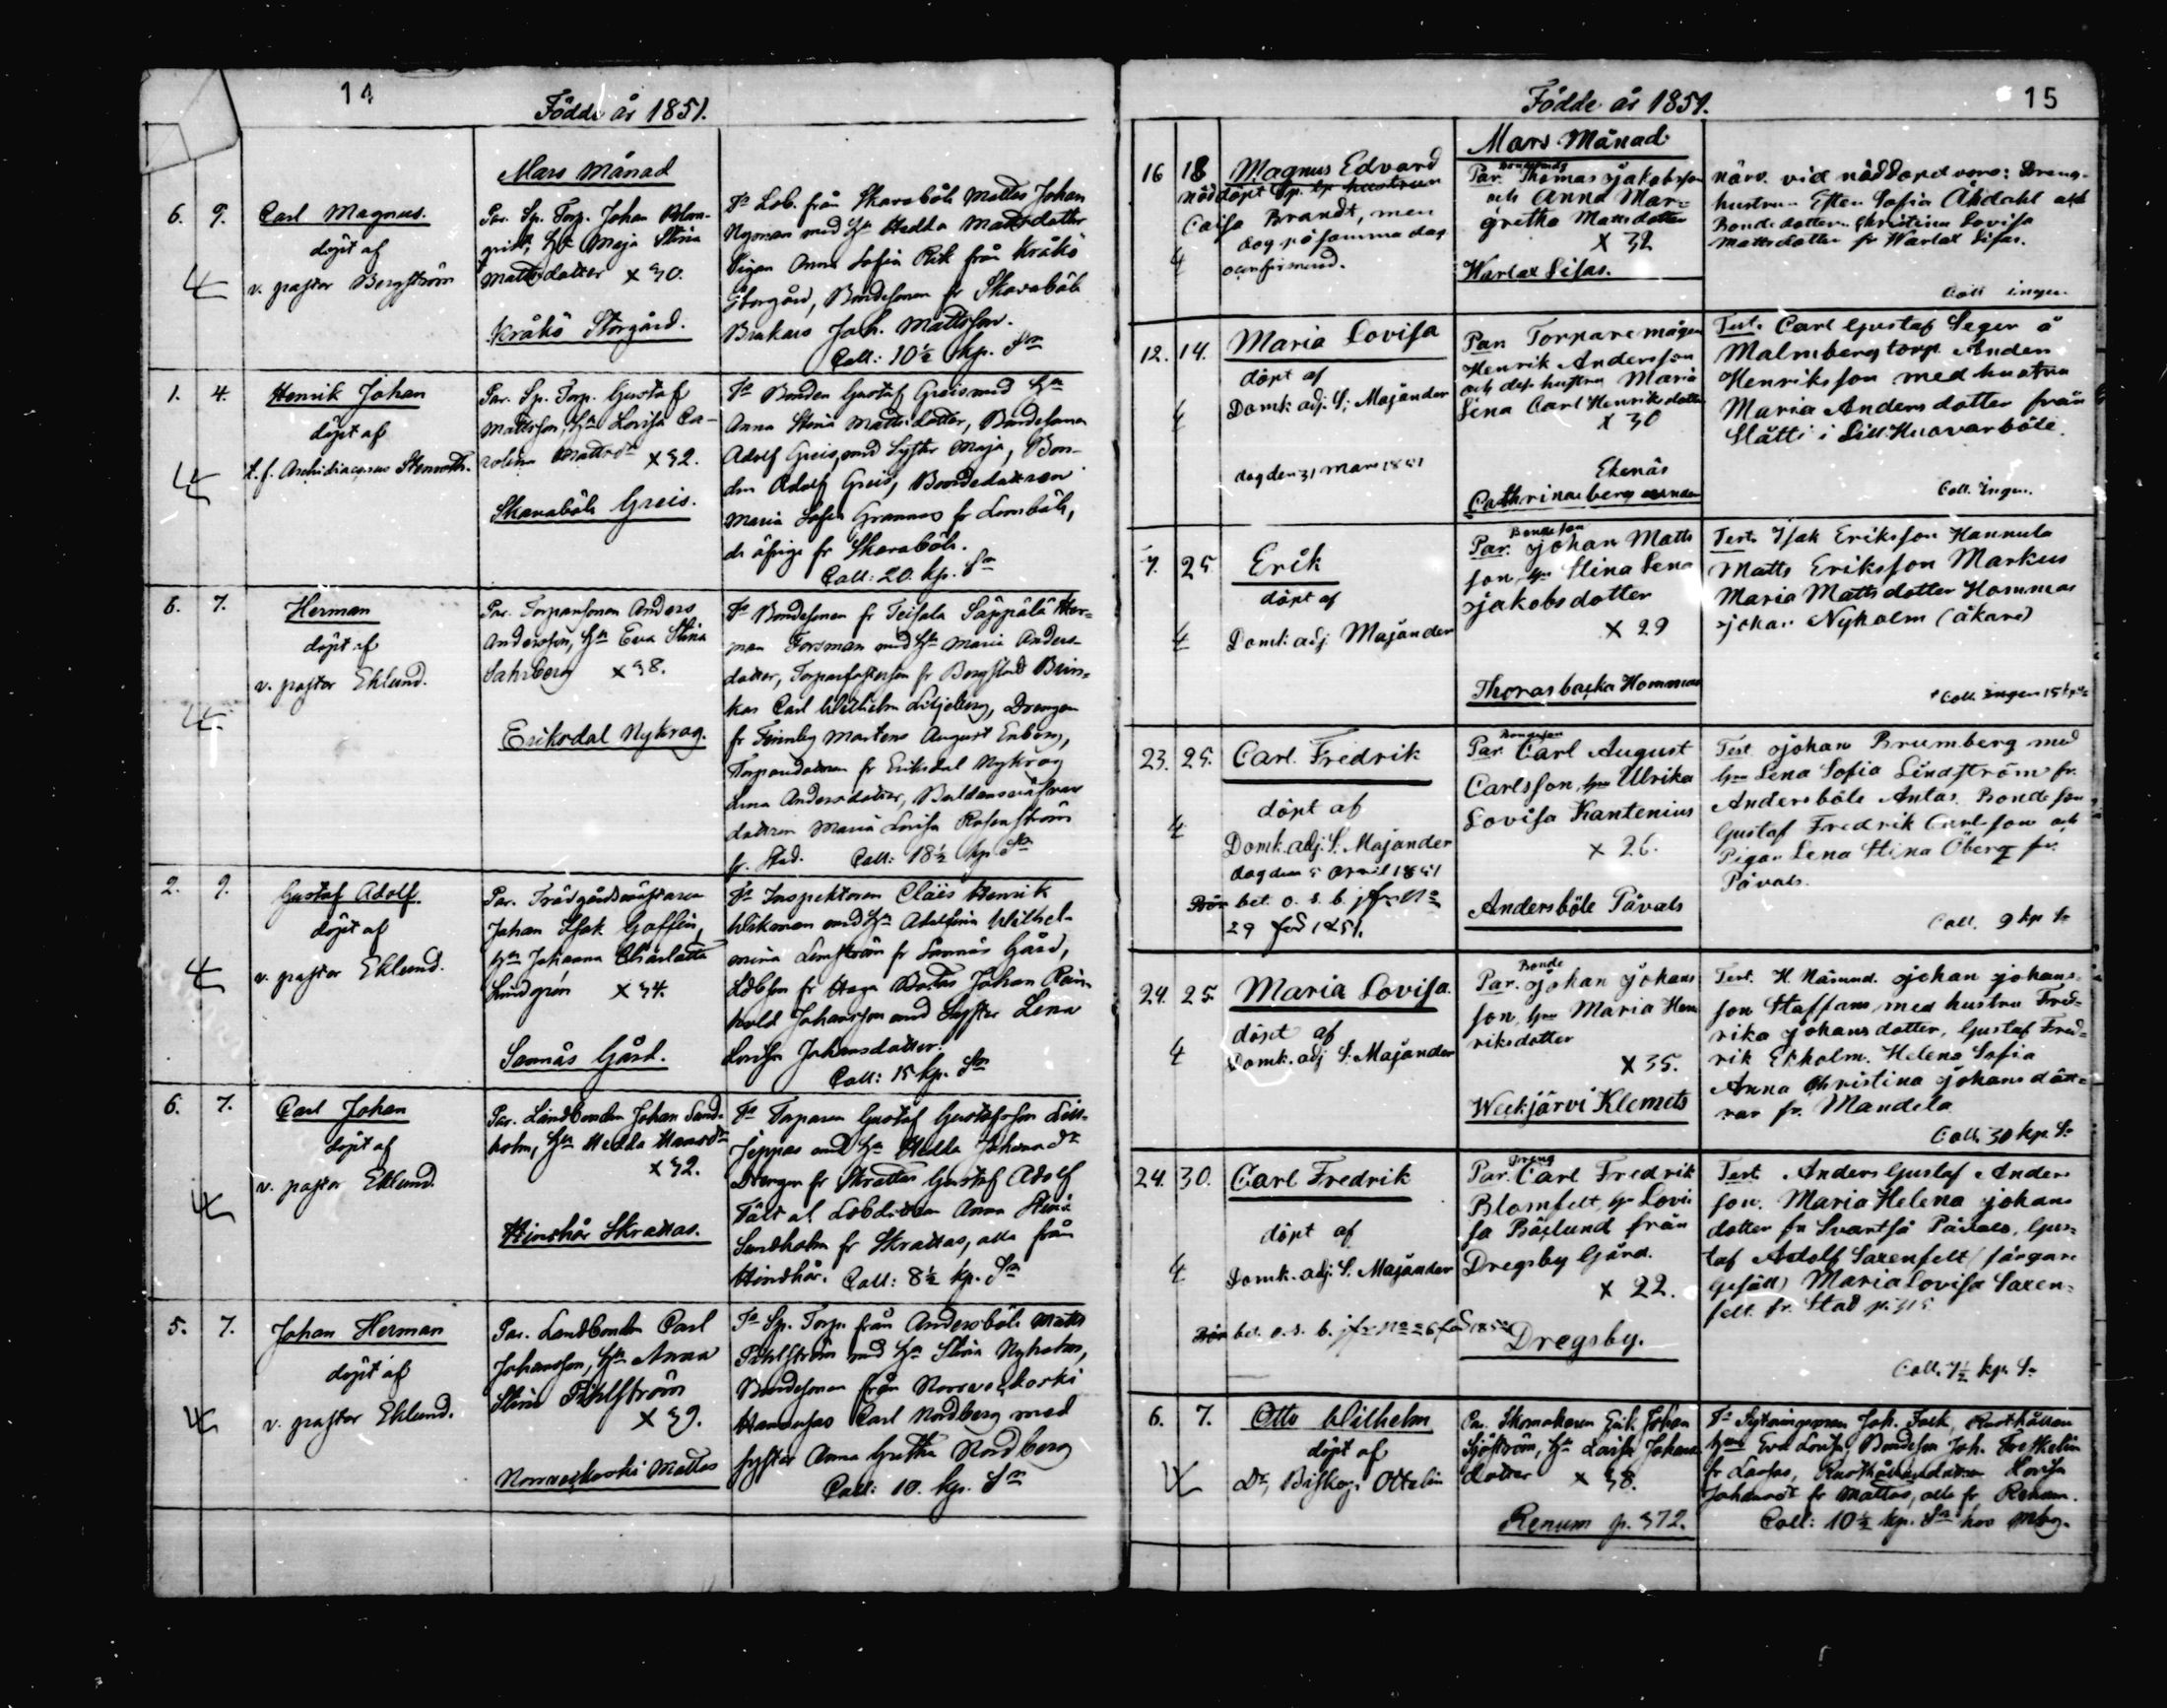 14
Födde år 1851.
Mars Månad
6. 9. Carl Magnus.
döpt af
v. pastor Bergström
Par. Sp. Torp. Johan Blom-
qvist, Hn Maja Stina
Mattsdotter x 30.
Kråkö Storgård.
Ts Lob. från Skavaböle Mattas Johan
Nyman med Hn Hedda Mattsdotter
Pigan Anna Sofia Rik från Kråkö
Storgård, Bondesonen fr Skavaböle
Brukars Joh. Mattsson.
Coll: 10½ kp. Sr
1. 4. Henrik Johan
döpt af
t. f. Archidiaconus Stenroth.
Par. Sp. Torp. Gustaf
Mattsson, Hn Lovisa Ca-
rolina Mattsdr x 32.
Skavaböle Greis.
Ts Bonden Gustaf Greis med Hn
Anna Stina Mattsdotter, Bondesonen
Adolf Greis, med Syster Maja, Bon-
den Adolf Greis, Bondedottren
Maria Sofia Grannas fr Lomböle,
de öfrige fr Skavaböle.
Coll: 20. kp. Sr
6. 7. Herman
döpt af
v. pastor Eklund.
Par. Torparesonen Anders
Andersson, Hn Eva Stina
Sahlberg x 38.
Eriksdal Nykrog.
Ts Bondesonen fr Teisala Säppälä Her-
man Forsman med Hn Maria Anders-
dotter, Torparesonen fr Borgstad Brin-
kas Carl Wilhelm Liljeberg, Drengen
fr Finnby Mårtens August Enberg,
Torparedottren fr Eriksdal Nykrog
Lina Andersdotter,
dottren Maria Lovisa Rosenström
fr. Stad. Coll: 18½ kp. Sr
2. 9. Gustaf Adolf.
döpt af
v. pastor Eklund.
Par. Trädgårdsmästaren
Johan Isak Gaffin,
Hn Johanna Charlotta
Lindgren x 34.
Sannäs Gård.
Ts Inspektoren Claës Henrik
Wikman med Hn Adolfina Wilhel-
mina Lindström fr Sannäs Gård,
Ldbson fr Haga Bostas Johan Rein-
hold Johansson med Syster Lena
Lovisa Johansdotter.
Coll: 15 kp. Sr
6. 7. Carl Johan
döpt af
v. pastor Eklund.
Par. Landbonden Johan Sand-
holm, Hn Hedda Hansdr
x 32.
Hindhår Skrattas.
Ts Torparen Gustaf Gustafsson Lill-
Jeppas med Hn Hedda Johansdr
Drengen fr Skrattas Gustaf Adolf
Fält o Ldbdottren Anna Stina
Sandholm fr Skrattas, alla från
Hindhår. Coll: 8½ kp. Sr
5. 7. Johan Herman
döpt af
v. pastor Eklund.
Par. Landbonden Carl
Johansson, Hn Anna
Stina Pihlström
x 39.
Norrveckoski Mattas
Ts Sp. Torp. från Andersböle Matts
Pihlström med Hn Stina Nyholm,
Bondesonen från Norrveckoski
Hannusas Carl Nordberg med
syster Anna Gretha Nordberg
Coll: 10. kp. Sr
15
Födde år 1851.
Mars Månad
16 18 Magnus Edvard
nöddöpt
Caisa Brandt, men
dog på samma dag
oconfirmerad.
Par. Thomas Jakobsson
och Anna Mar-
gretha Mattsdotter
x 32
Warlax Sisas.
närv. vid nöddopet voro: Dreng-
hustrun Ester Sofia Åkdahl och
Bondedottern Christina Lovisa
Mattsdotter fr Warlax Sisas.
Coll ingen.
12. 14. Maria Lovisa
döpt af
Domk. adj. S. Majander
dog den 31 mars 1851
Par. Torparemågen
Henrik Andersson
och dess hustru Maria
Lena Carl Henriksdotter
x 30
Ekenäs
Cathrinaeberg
Test. Carl Gustaf Seger å
Malmbergstorp. Anders
Henriksson med hustru
Maria Andersdotter från
Slätti i Lill Huovarböle.
Coll. Ingen.
7. 25. Erik
döpt af
Domk. adj. Majander
Bondeson
Par. Johan Matts
son, hn Stina Lena
Jakobsdotter
x 29
Thorasbacka Hommas
Test. Isak Eriksson Hannula
Matts Eriksson Markus
Maria Mattsdotter Hommas
Johan Nyholm (åkare)
Coll. Ingen 15 kp
23. 25. Carl Fredrik
döpt af
Domk. adj. S. Majander
dog den 5 April 1851
bet. o. s. b. jfr No
29 fad 1851.
Bondeson
Par. Carl August
Carlsson, hn Ulrika
Lovisa Kantenius
x 26.
Andersböle Påvals
Test. Johan Brumberg med
hn Lena Sofia Lindström fr.
Andersböle Antas. Bondeson
Gustaf Fredrik Carlsson och
Pigan Lena Stina Öberg fr.
Påvals.
Coll. 9 kp Sr
24. 25. Maria Lovisa.
döpt af
Domk. adj. S. Majander
Bonde
Par. Johan Johans
son, hn Maria Hen
riksdotter
x 35.
Weckjärvi Klemets
Test. H. Nämnd. Johan Johans-
son Staffans med hustru Fred-
rika Johansdotter, Gustaf Fred-
rik Ekholm. Helena Sofia
Anna Christina Johansdött-
rar fr. Mandela
Coll. 30 kp. Sr
24. 30. Carl Fredrik
döpt af
Domk. adj. S. Majander
bet. o. s. b. jfr No 26 fad 1852
Dreng
Par. Carl Fredrik
Blomfelt, hn Lovi
sa Böclund från
Dregsby Gård.
x 22.
Dregsby.
Test. Anders Gustaf Anders
son. Maria Helena Johans
dotter fr Svartså Påvals, Gus-
taf Adolf Saxenfelt (färgare
Gesäll) Maria Lovisa Saxen-
felt fr. Stad p. 315
Coll. 7½ kp. Sr
6. 7. Otto Wilhelm
döpt af
Dr, Biskop Ottelin
Par. Skomakaren Erik Johan
Sjöström, Hn Lovisa Johans
dotter x 38.
Renum p. 372.
Ts Sytningsman Joh. Falk, Rusthållare
hn Eva Lovisa, Bondeson Joh.
fr Larsas, Rusthållaredottren Lovisa
Johansdr fr Mattas, alla fr Renum.
Coll: 10½ kp. Sr hos